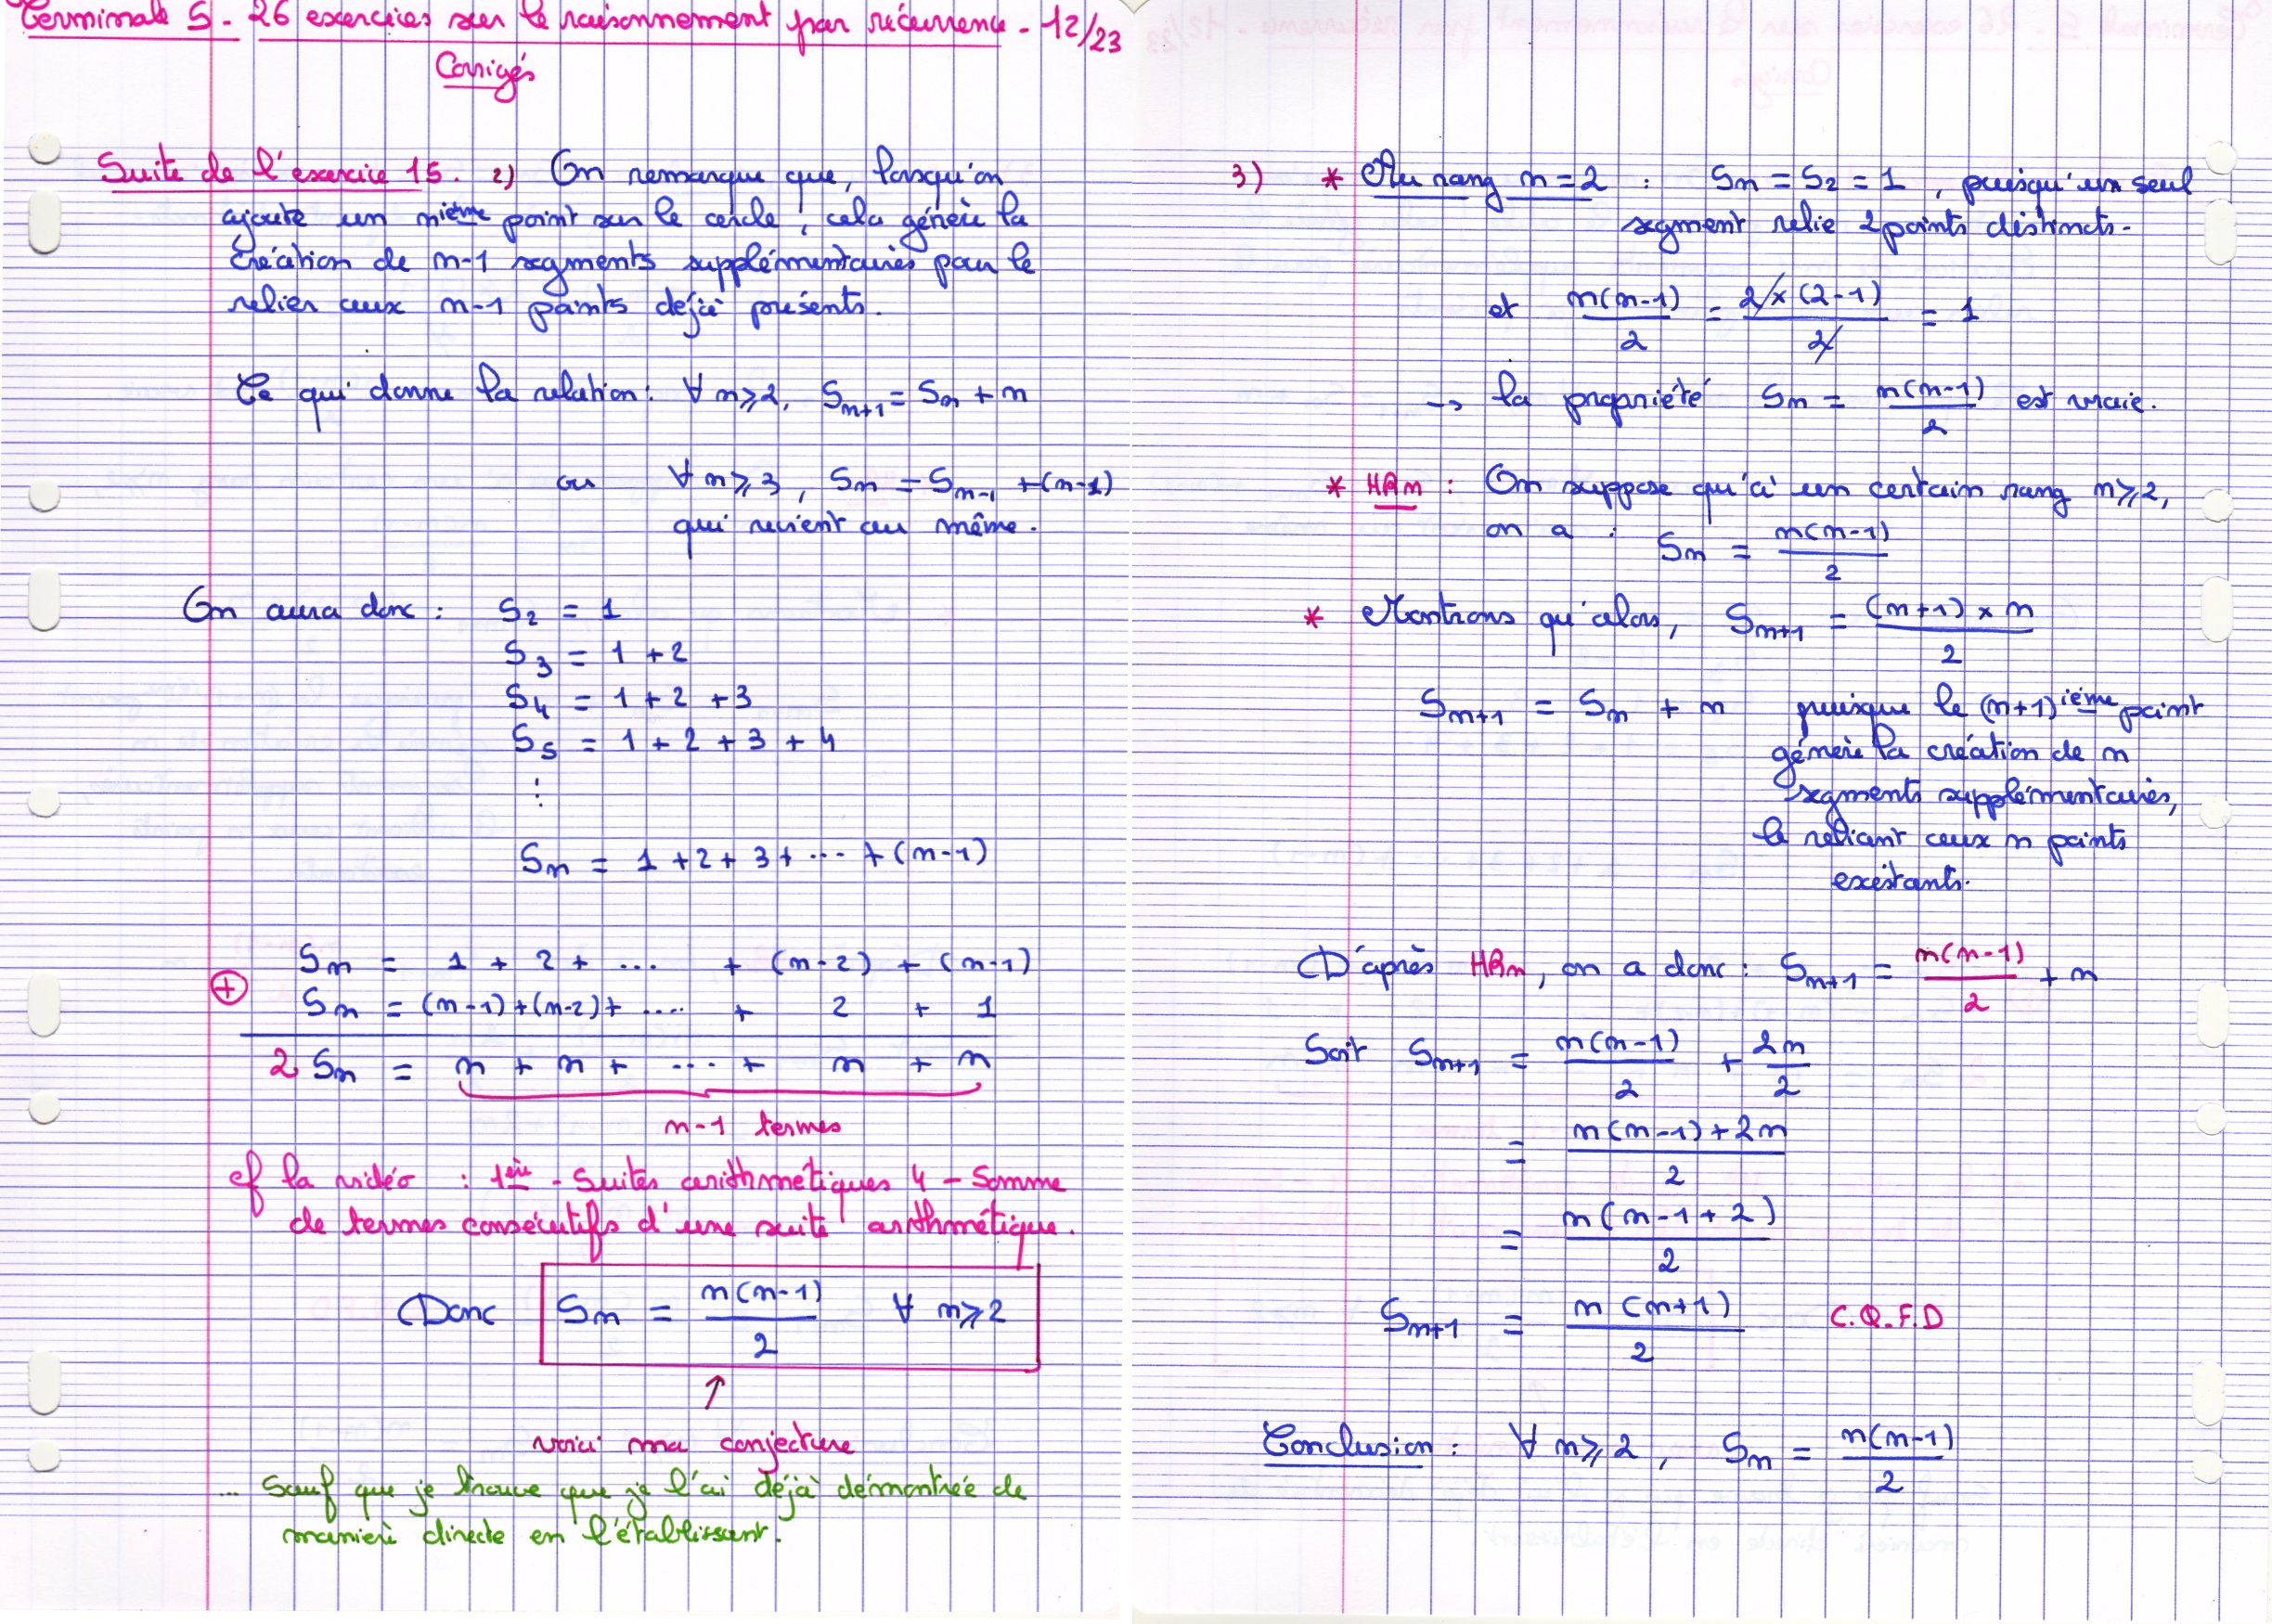 Terminale S - 26 exercices sur le raisonnement par récurrence - 12/23
Corrigés
Suite de l'exercice 15. 2) On remarque que, lorsqu'on
ajoute un nième point sur le cercle, cela génère la
création de n-1 segments supplémentaires pour le
relier aux n-1 points déjà présents.
Ce qui donne la relation : ∀ n⩾2, Sn+1 = Sn + n
ou ∀ n⩾3, Sn = Sn-1 + (n-1)
qui revient au même.
On aura donc : S2 = 1
S3 = 1 + 2
S4 = 1 + 2 + 3
S5 = 1 + 2 + 3 + 4
⋮
Sn = 1 + 2 + 3 + ... + (n-1)
Sn = 1 + 2 + ... + (n-2) + (n-1)
⊕ Sn = (n-1) + (n-2) + .... + 2 + 1
2 Sn = n + n + ... + n + n
n-1 termes
cf la vidéo : 1ère - Suites arithmétiques 4 - Somme
de termes consécutifs d'une suite arithmétique.
Donc Sn = n(n-1)/2 ∀ n⩾2
↑
voici ma conjecture
... Sauf que je trouve que je l'ai déjà démontrée de
manière directe en l'établissant.
3) * Au rang n=2 : Sn = S2 = 1, puisqu'un seul
segment relie 2 points distincts.
et n(n-1)/2 = 2×(2-1)/2 = 1
→ la propriété Sn = n(n-1)/2 est vraie.
* HRn : On suppose qu'à un certain rang n⩾2,
on a : Sn = n(n-1)/2
* Montrons qu'alors, Sn+1 = (n+1)×n/2
Sn+1 = Sn + n puisque le (n+1)ième point
génère la création de n
segments supplémentaires,
le reliant aux n points
existants.
D'après HRn, on a donc : Sn+1 = n(n-1)/2 + n
Soit Sn+1 = n(n-1)/2 + 2n/2
= n(n-1)+2n/2
= n(n-1+2)/2
Sn+1 = n(n+1)/2 C.Q.F.D
Conclusion : ∀ n⩾2, Sn = n(n-1)/2